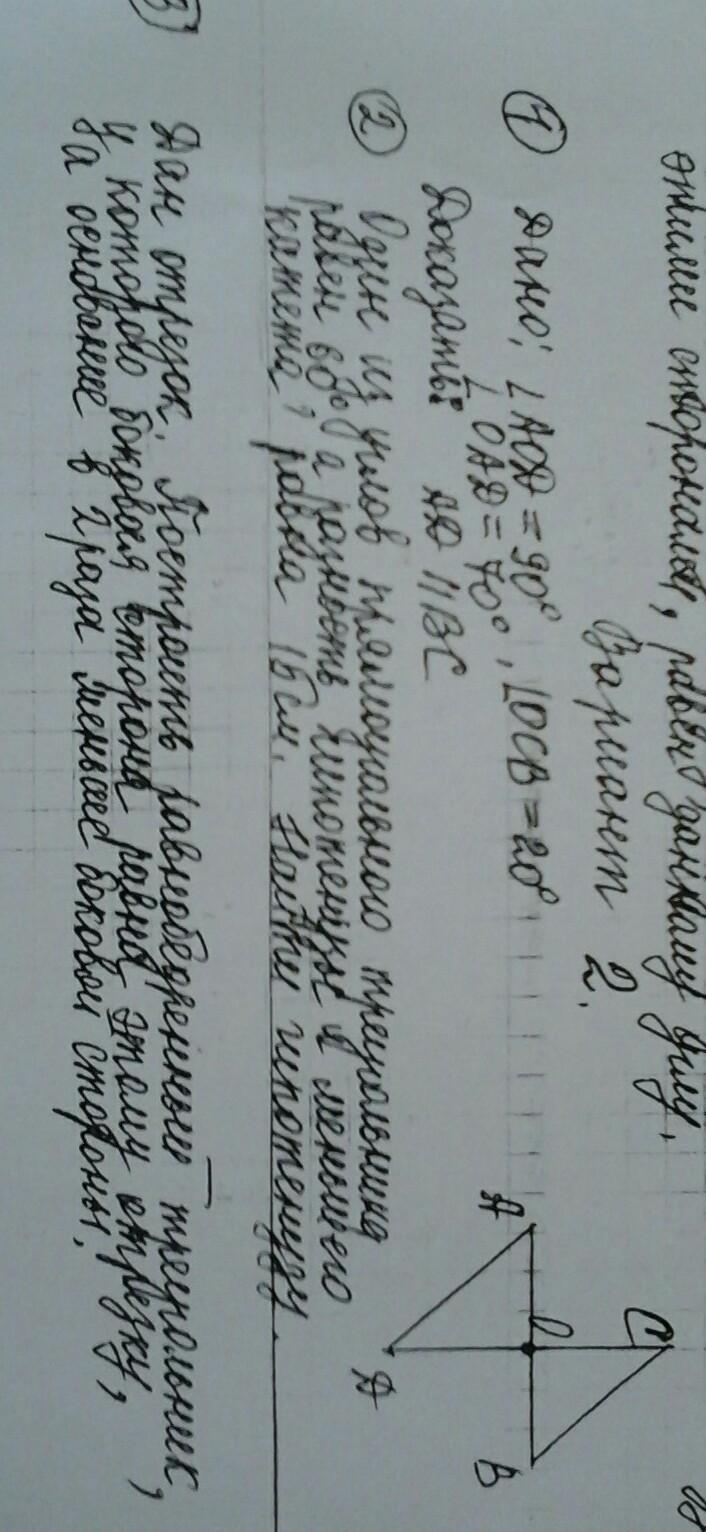 этими сторонами, равен данному углу.
Вариант 2.
① Дано: ∠AOD = 90°
∠OAD = 70°, ∠OCB = 20°
Доказать: AD || BC
A
O
C
B
D
② Один из углов прямоугольного треугольника
равен 60°, а разность гипотенузы и меньшего
катета, равна 15 см. Найти гипотенузу.
③ Дан отрезок. Построить равнобедренный треугольник,
у которого боковая сторона равна этому отрезку,
а основание в 2 раза меньше боковой стороны.